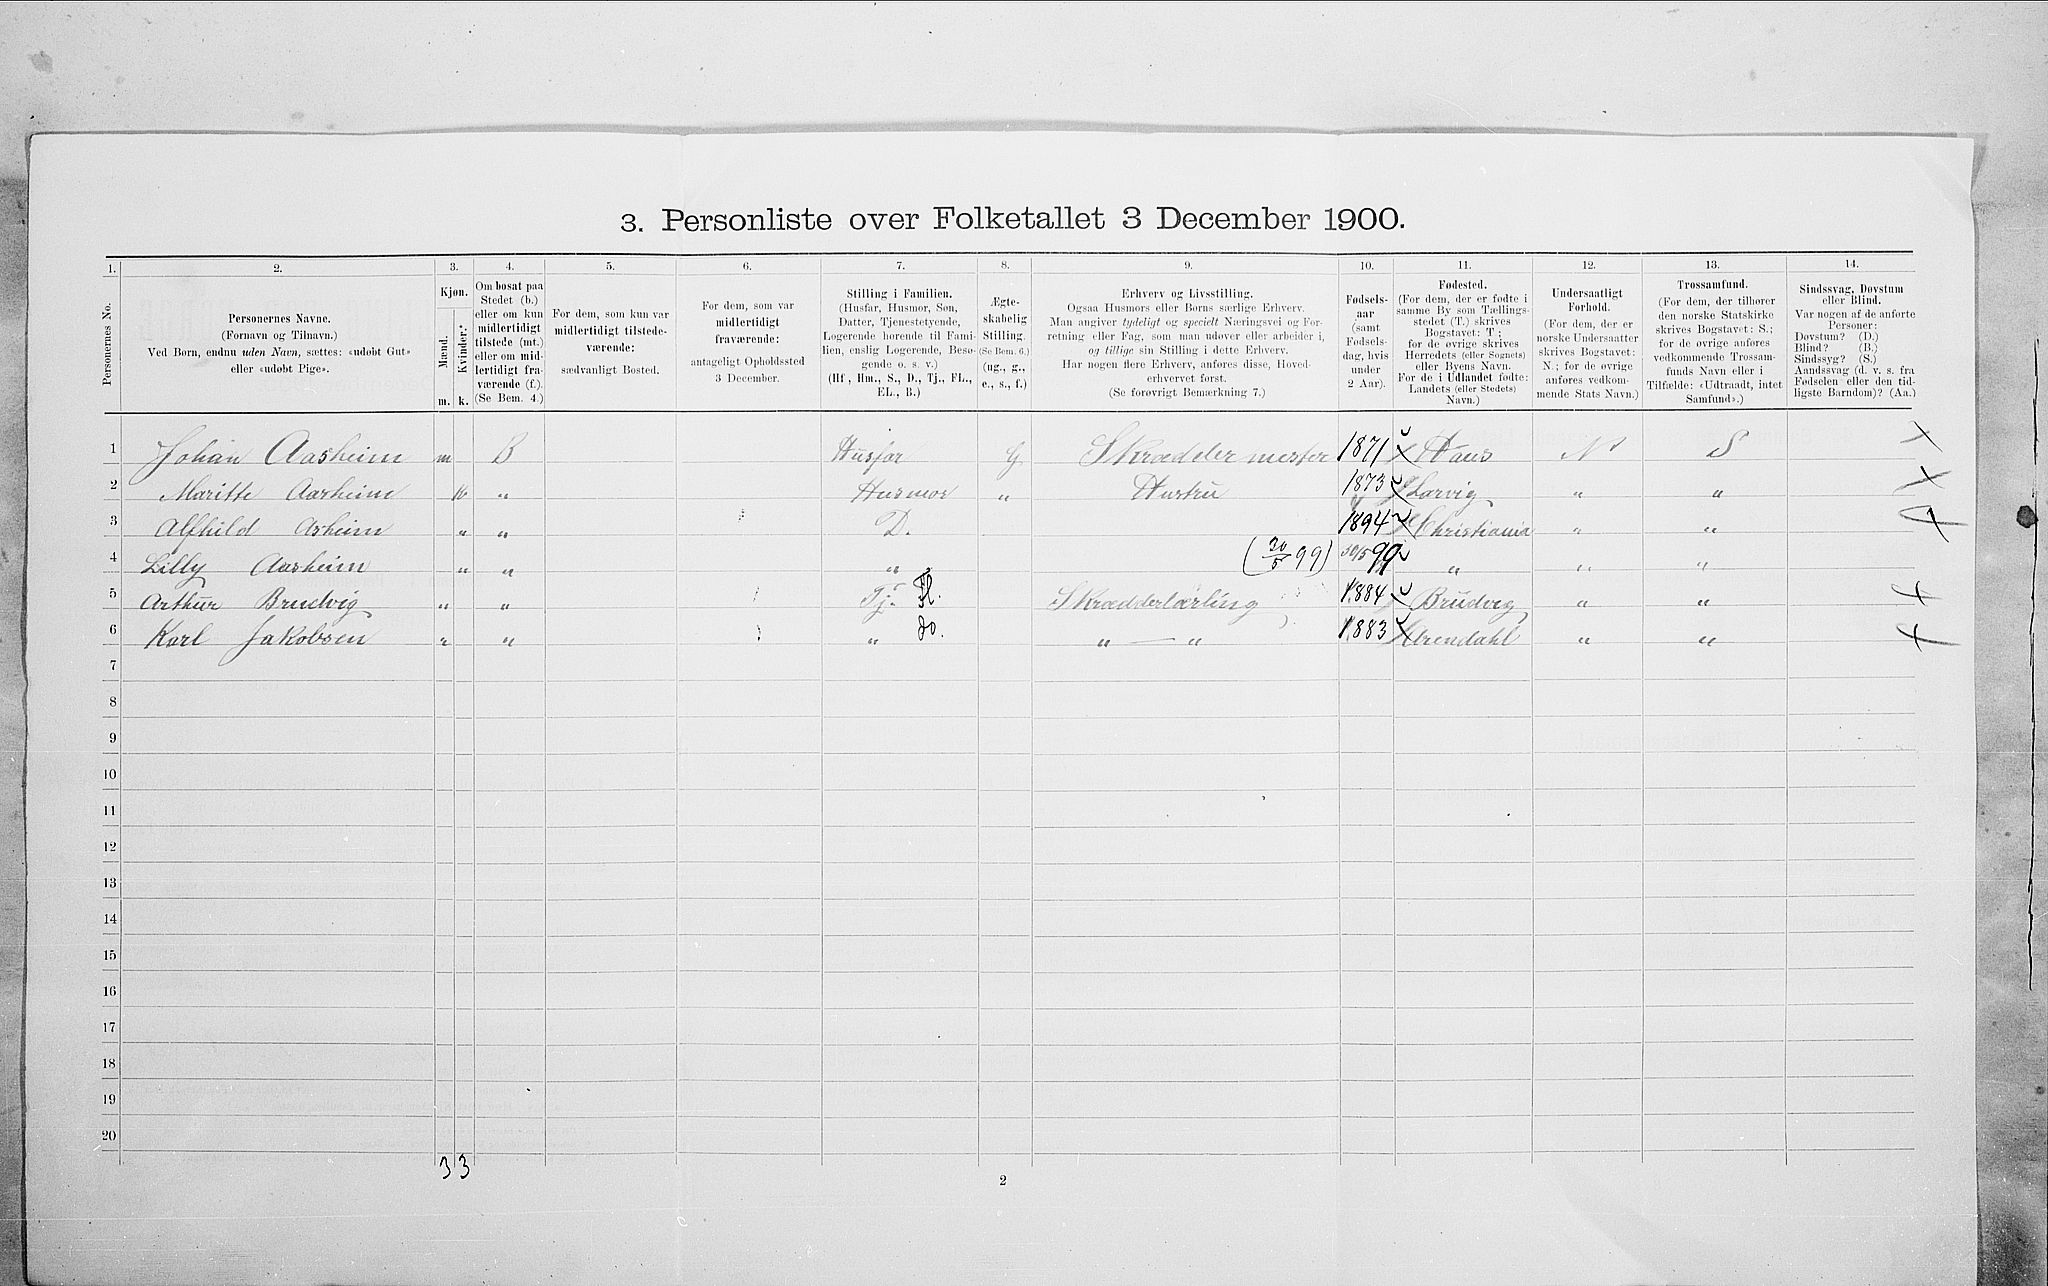 3. Personliste over Folketallet 3 December 1900.
1. 2. 3. 4. 5. 6. 7. 8. 9. 10. 11. 12. 13. 14.
Personernes No.
Personernes Navne.
(Fornavn og Tilnavn.)
Ved Børn, endnu uden Navn, sættes: «udøbt Gut»
eller «udøbt Pige».
Kjøn.
Mænd.
Kvinder.*
m. k.
Om bosat paa
Stedet (b.)
eller om kun
midlertidigt
tilstede (mt.)
eller om mid-
lertidigt fra-
værende (f.).
(Se Bem. 4.)
For dem, som kun var
midlertidigt tilstede-
værende:
sædvanligt Bosted.
For dem, som var
midlertidigt
fraværende:
antageligt Opholdssted
3 December.
Stilling i Familien.
(Husfar, Husmor, Søn,
Datter, Tjenestetyende,
Logerende hørende til Fami-
lien, enslig Logerende, Besø-
gende o. s. v.)
(Hf, Hm., S., D., Tj., FL.,
EL., B.)
Ægte-
skabelig
Stilling.
(Se Bem. 6.)
(ug., g.,
e., s., f.)
Erhverv og Livsstilling.
Ogsaa Husmors eller Børns særlige Erhverv.
Man angiver tydeligt og specielt Næringsvei og For-
retning eller Fag, som man udøver eller arbeider i,
og tillige sin Stilling i dette Erhverv.
Har nogen flere Erhverv, anføres disse, Hoved-
erhvervet først.
(Se forøvrigt Bemærkning 7.)
Fødsels-
aar
(samt
Fødsels-
dag, hvis
under
2 Aar).
Fødested.
(For dem, der er fødte i
samme By som Tællings-
stedet (T.) skrives
Bogstavet: T.;
for de øvrige skrives
Herredets (eller Sognets)
eller Byens Navn.
For de i Udlandet fødte:
Landets (eller Stedets)
Navn.)
Undersaatligt
Forhold.
(For dem, der er
norske Undersaatter
skrives Bogstavet:
N.; for de øvrige
anføres vedkom-
mende Stats Navn.)
Trossamfund.
(For dem, der tilhører
den norske Statskirke
skrives Bogstavet: S.;
for de øvrige anføres
vedkommende Trossam-
funds Navn eller i
Tilfælde: «Udtraadt, intet
Samfund».)
Sindssvag, Døvstum
eller Blind.
Var nogen af de anførte
Personer:
Døvstum? (D.)
Blind? (B.)
Sindssyg? (S.)
Aandssvag (d. v. s. fra
Fødselen eller den tid-
ligste Barndom)? (Aa.)
1 Johan Aasheim m B Husfar G Skrædder mester 1871 Haus N S
2 Maritte Aasheim k " Husmor " Hustru 1873 Larvig " "
3 Alfhild Asheim " " D. 1894 Christiania " "
4 Lilly Aasheim " " " (30/5 99) 30/5 99 " " "
5 Arthur Brudvig " " Tj. Fl. Skrædderlærling 1884 Brudvig " "
6 Karl Jakobsen " " " do. " — " 1883 Arendahl " "
7
8
9
10
11
12
13
14
15
16
17
18
19
20
3 3
2